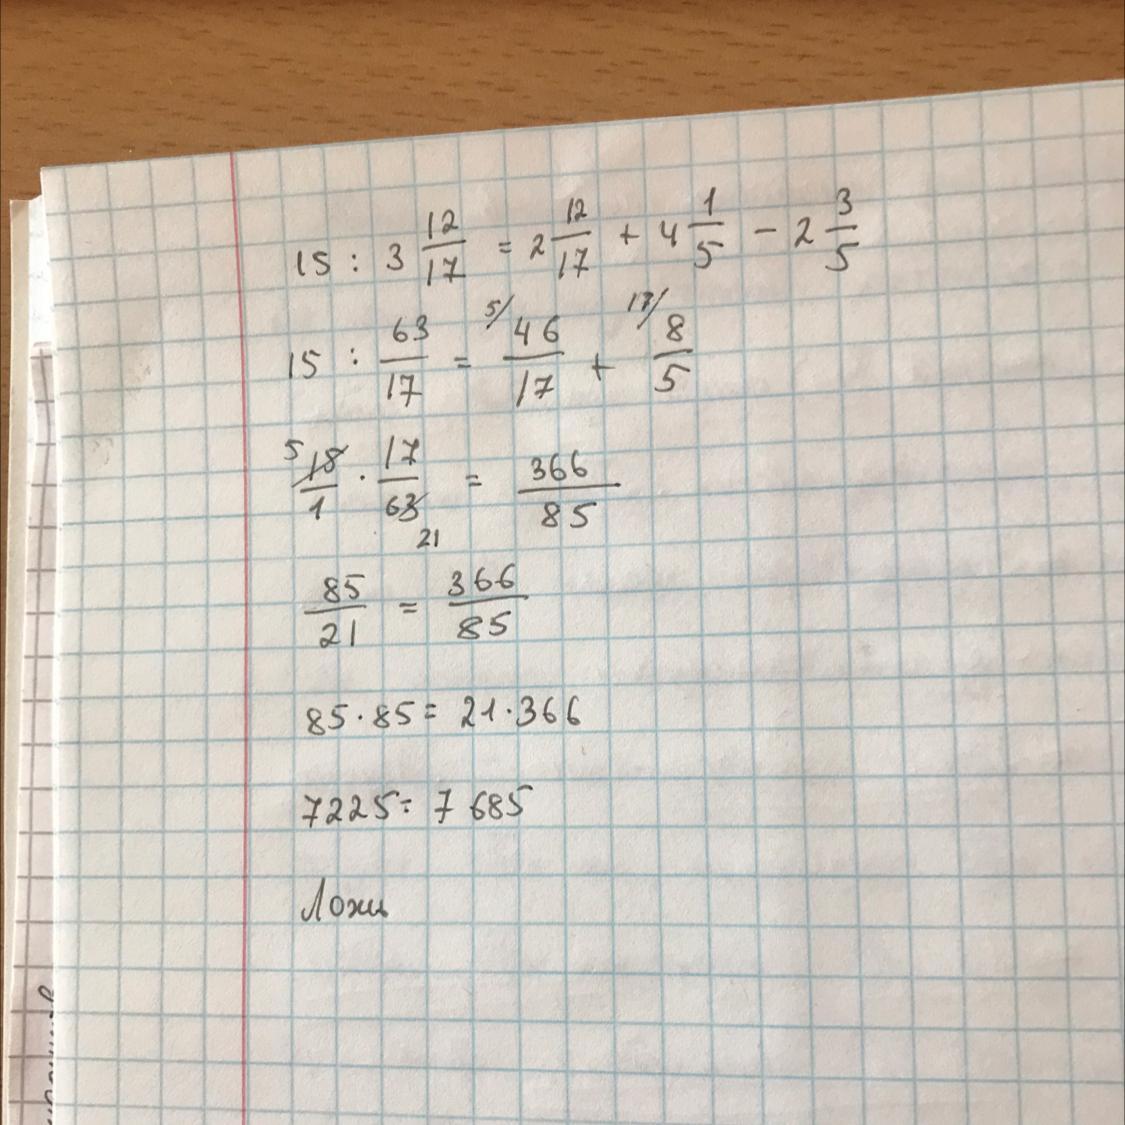 15 : 3 12/17 = 2 12/17 + 4 1/5 - 2 3/5
15 : 63/17 = 5/ 46/17 + 17/ 8/5
5 15/1 · 17/63 21 = 366/85
85/21 = 366/85
85 · 85 = 21 · 366
7225 = 7 685
Ложь